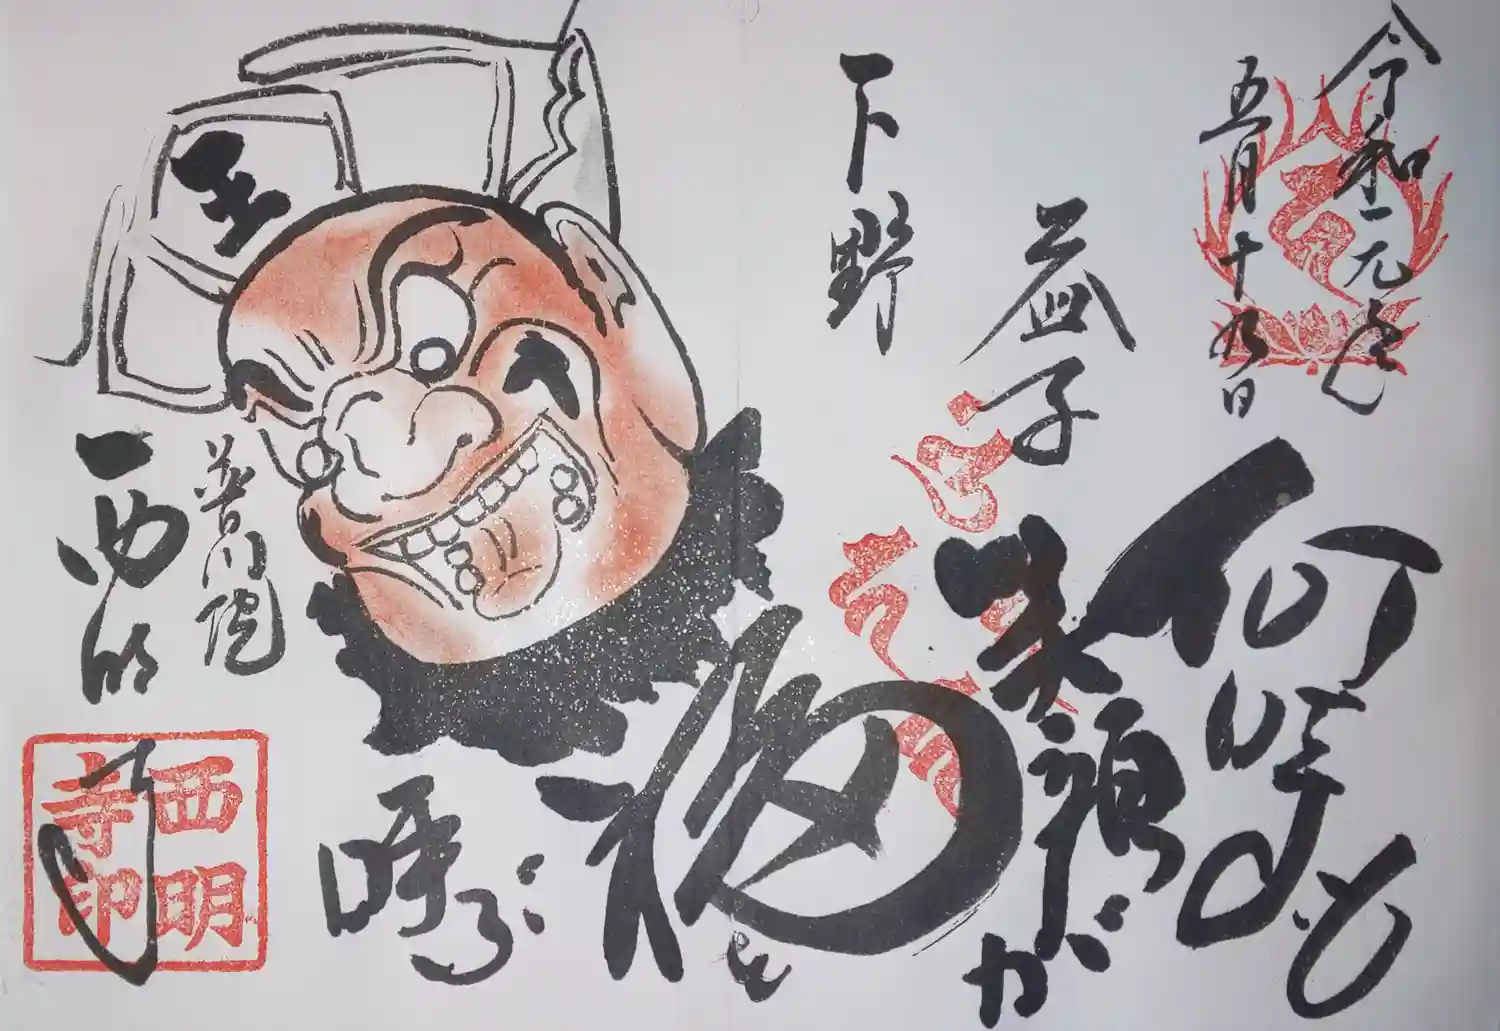 令和元年
五月十九日
何時も
笑顔が
益子
下野
福を
呼ぶ
王
普門院
西明寺
西明
寺印